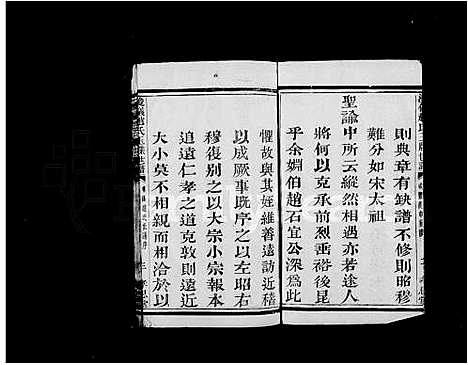 則典章有缺譜不修則昭穆
難分如宋太祖
聖諭中所云縱然相亦若途人
將何以克承前烈垂裕後昆
乎余嫺伯趙石宜公深為此
懼故與其姪維善遠訪近稽
以成厥事既序之以左昭右
穆復別之以大宗小宗報本
追遠仁孝之道克敦則遠近
大小莫不相親而相洽於以